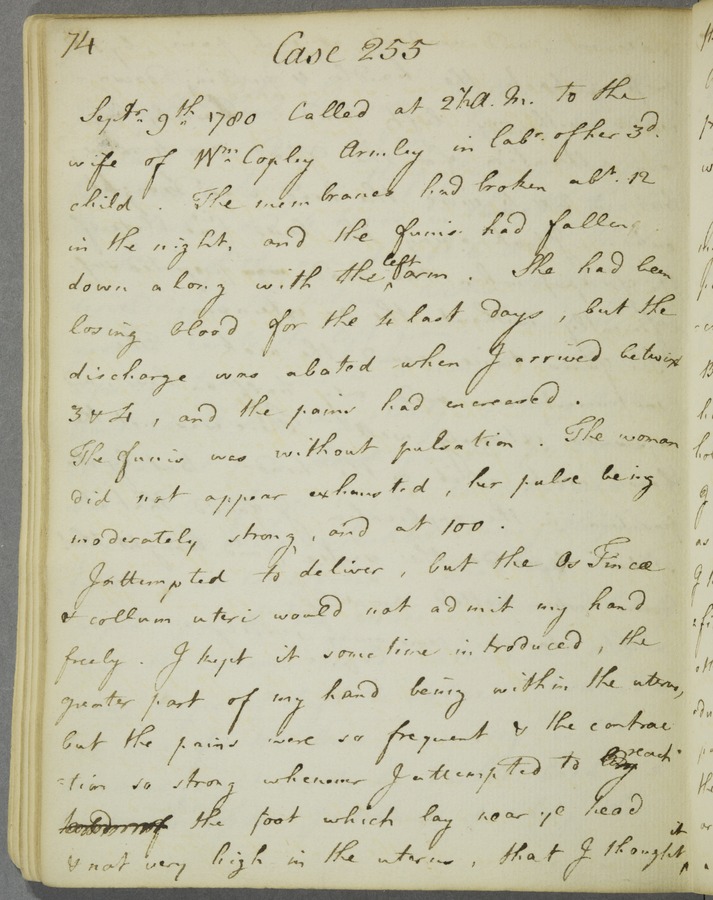 74
Case 255
Septr. 9th 1780 Called at 2h A. M. to the
wife of Wm Copley Armley in labr. of her 3d.
child. The membranes had broken abt. 12
in the night, and the funis had fallen
down along with the left arm. She had been
losing blood for the 4 last days, but the
discharge was abated when I arrived betwixt
3 & 4, and the pains had encreased.
The funis was without pulsation. The woman
did not appear exhausted, her pulse being
moderately strong, and at 100.
I attempted to deliver, but the Os Tincæ
& collum uteri would not admit my hand
freely. I kept it some time introduced, the
greater part of my hand being within the uterus,
but the pains were so frequent & the contrac
=tion so strong whenever I attempted to reach
the foot which lay near ye head
& not very high in the uterus, that I thought it